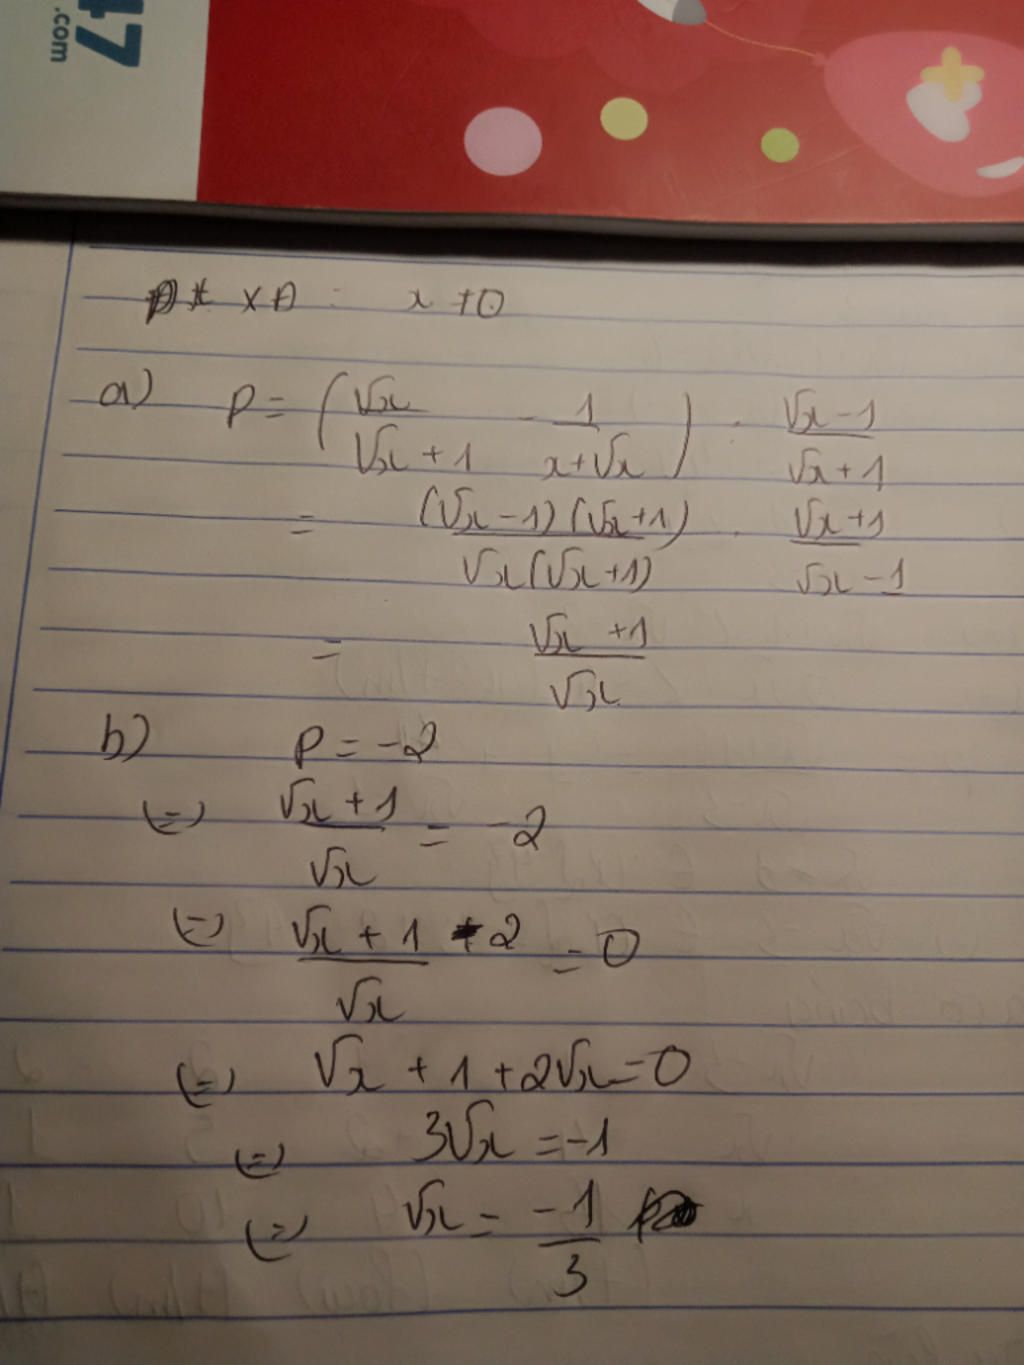 47
.com
XĐ : x ≠ 0
a) P = (√x/(√x + 1) - 1/(x+√x)) : (√x - 1)/(√x + 1)
= (√x - 1)(√x + 1)/(√x(√x + 1)) . (√x + 1)/(√x - 1)
= (√x + 1)/√x
b) P = -2
(=) (√x + 1)/√x = -2
(=) (√x + 1 + 2)/√x = 0
(=) √x + 1 + 2√x = 0
(=) 3√x = -1
(=) √x = -1/3